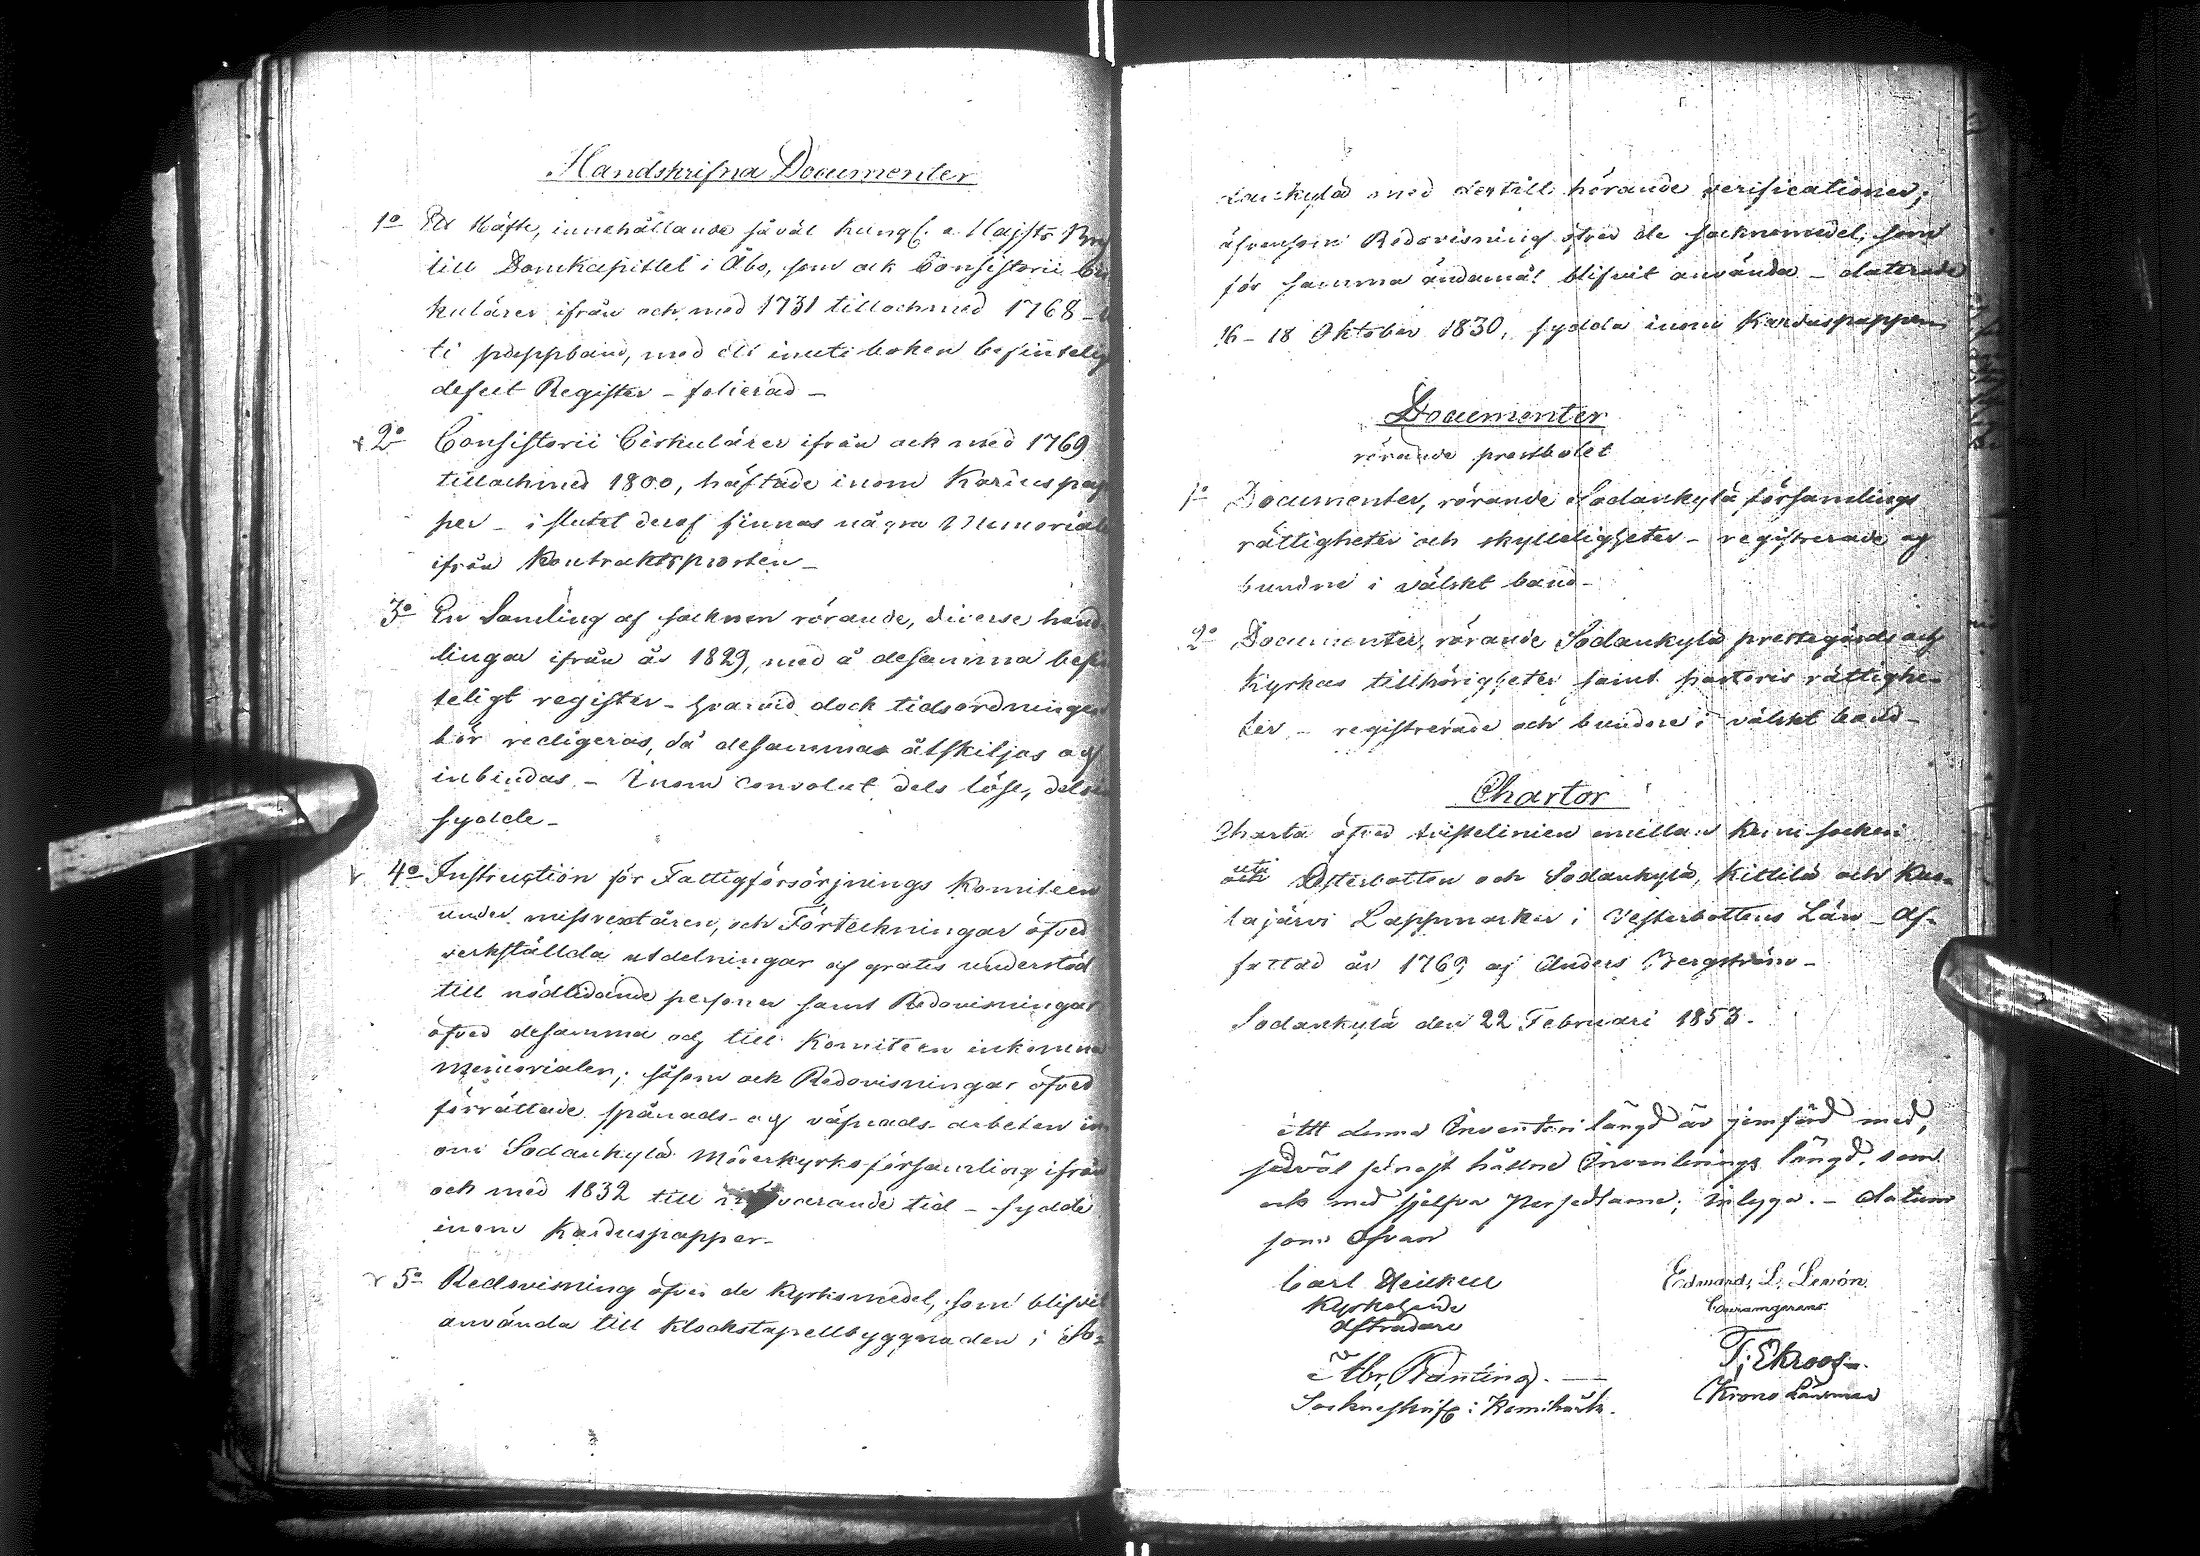 Handskrifna Documenter
1o Ett Häfte, innehållande såväl Kungl. Majsts Bref
till Domkapitlet i Åbo, som ock Consistorii Cir
kulärer ifrån och med 1731 tillochmed 1768 –
ti pappband, med ett inuti boken befintelig
defect Register – folierad –
2o Consistorii Cirkulärer ifrån ock med 1769
tillochmed 1800, häftade inom Karduspap
per – i slutet deraf finnas några Memorialer
ifrån Kontraktsprosten –
3o En Samling af socknen rörande, diverse hand
lingar ifrån år 1829, med å desamma befin
teligt register – hvarvid dock tidsordningen
bör redigeras, då desammas åtskiljas och
inbindas – Inom convolut dels löse, dels
sydde –
4o Instruction för Fattigförsörjnings Komiteen
under missvextåren, och Förteckningar öfver
verkställda utdelningar af gratis understöd
till nödlidande personer samt Redovisningar
öfver desamma och till Komiteen inkomna
memorialer; såsom ock Redovisningar öfver
förrättade spånads- och väfnads- arbeten in
om Sodankylä Moderkyrkoförsamling ifrån
och med 1832 till varande tid – sydde
inom Karduspapper –
5o Redovisning öfver de Kyrkomedel, som blifvit
använda till Klockstapelbyggnaden i So=
dankylä med dertill hörande verificationer;
äfvensom Redovisning öfver de sockenemedel, som
för samma ändamål blifvit använda – daterade
16 – 18 Oktober 1830, sydda inom Karduspapper
Documenter
rörande prestbolet
1o Documenter, rörande Sodankylä församlings
rättigheter och skylleligheter – registrerade och
bundne i välskt band –
2o Documenter, rörande Sodankylä prestegårds och
Kyrkas tillhörigheter samt pastoris rättighe=
ter – registrerade och bundne i välskt band –
Chartor
Charta öfver tvistelinien emellan Kemi socken
uti Österbotten och Sodankylä, Kittilä och Kuo=
lajärvi Lappmarker i Vesterbottens Län – Af=
fattad år 1769 af Anders Bergström –
Sodankylä den 22 Februari 1853.
Att denna Inventarii längd är jemförd med,
såväl senast hållne Inventerings längd, som
ock med sjelfva Persedlarne; intyga. – Datum
som Ofvan
Carl Heickell
Kyrkoherde
Afträdare
Edward L. Lenón
Curamgerens
Abr. Planting. –
Sockneskrifv: i Kemiträsk.
T; Ekroos.
Krono Länsman